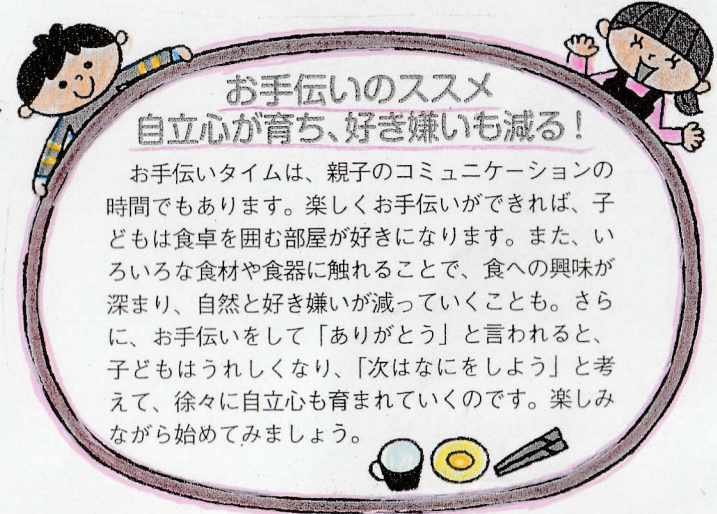 お手伝いのススメ
自立心が育ち、好き嫌いも減る！
お手伝いタイムは、親子のコミュニケーションの
時間でもあります。楽しくお手伝いができれば、子
どもは食卓を囲む部屋が好きになります。また、い
ろいろな食材や食器に触れることで、食への興味が
深まり、自然と好き嫌いが減っていくことも。さら
に、お手伝いをして「ありがとう」と言われると、
子どもはうれしくなり、「次はなにをしよう」と考
えて、徐々に自立心も育まれていくのです。楽しみ
ながら始めてみましょう。